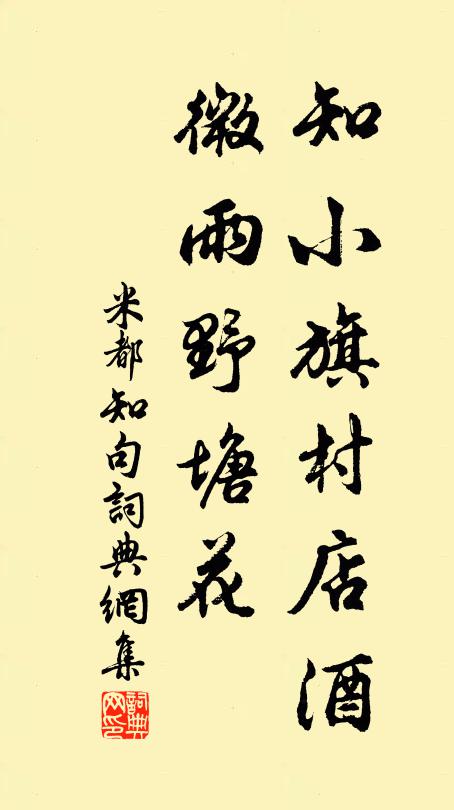 知小旗村店酒
微雨野塘花
米都知句詞典網集
詞典
网印